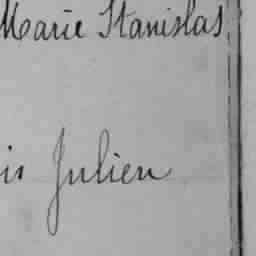 Marie Stanislas
is Julien